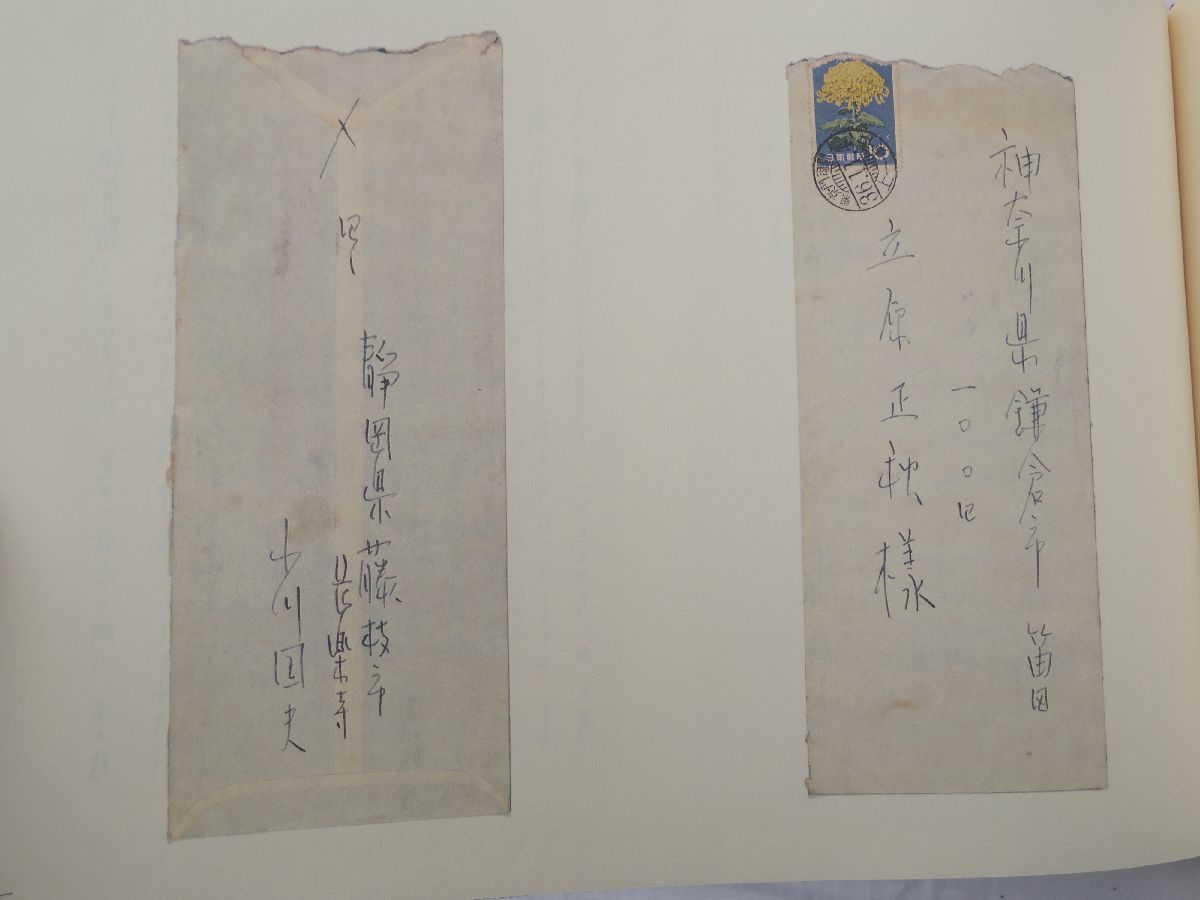 神奈川県鎌倉市笛田
一〇〇四
立原正秋様
静岡県藤枝市
長楽寺
小川国夫
36.1